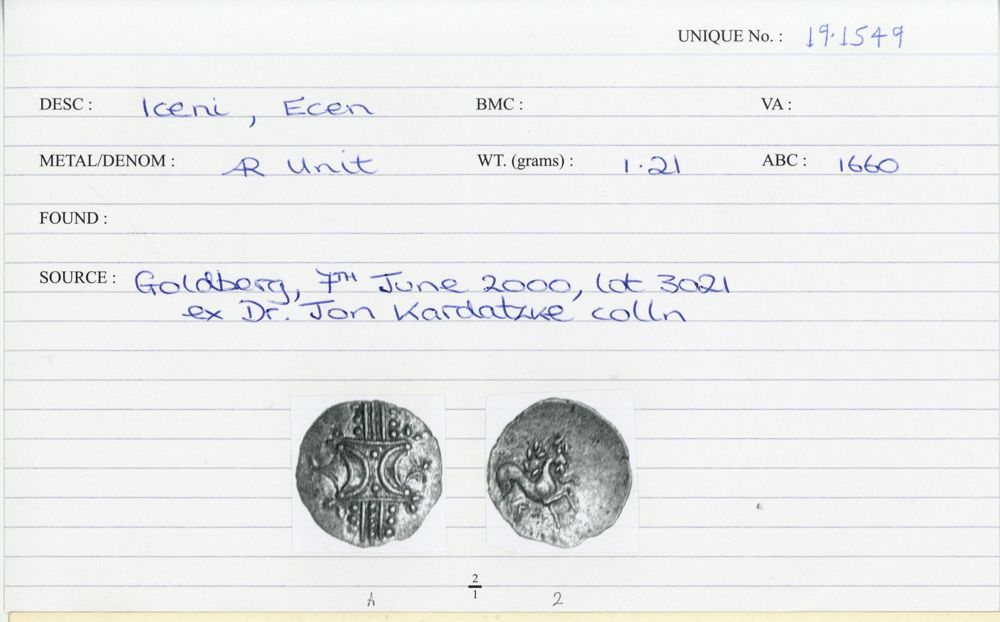 UNIQUE No. : 19.1549
DESC : Iceni, Ecen BMC : VA :
METAL/DENOM : AR Unit WT. (grams) : 1.21 ABC : 1660
FOUND :
SOURCE : Goldberg, 7TH June 2000, lot 3021
ex Dr. Jon Kardatzke colln
2/1
A 2